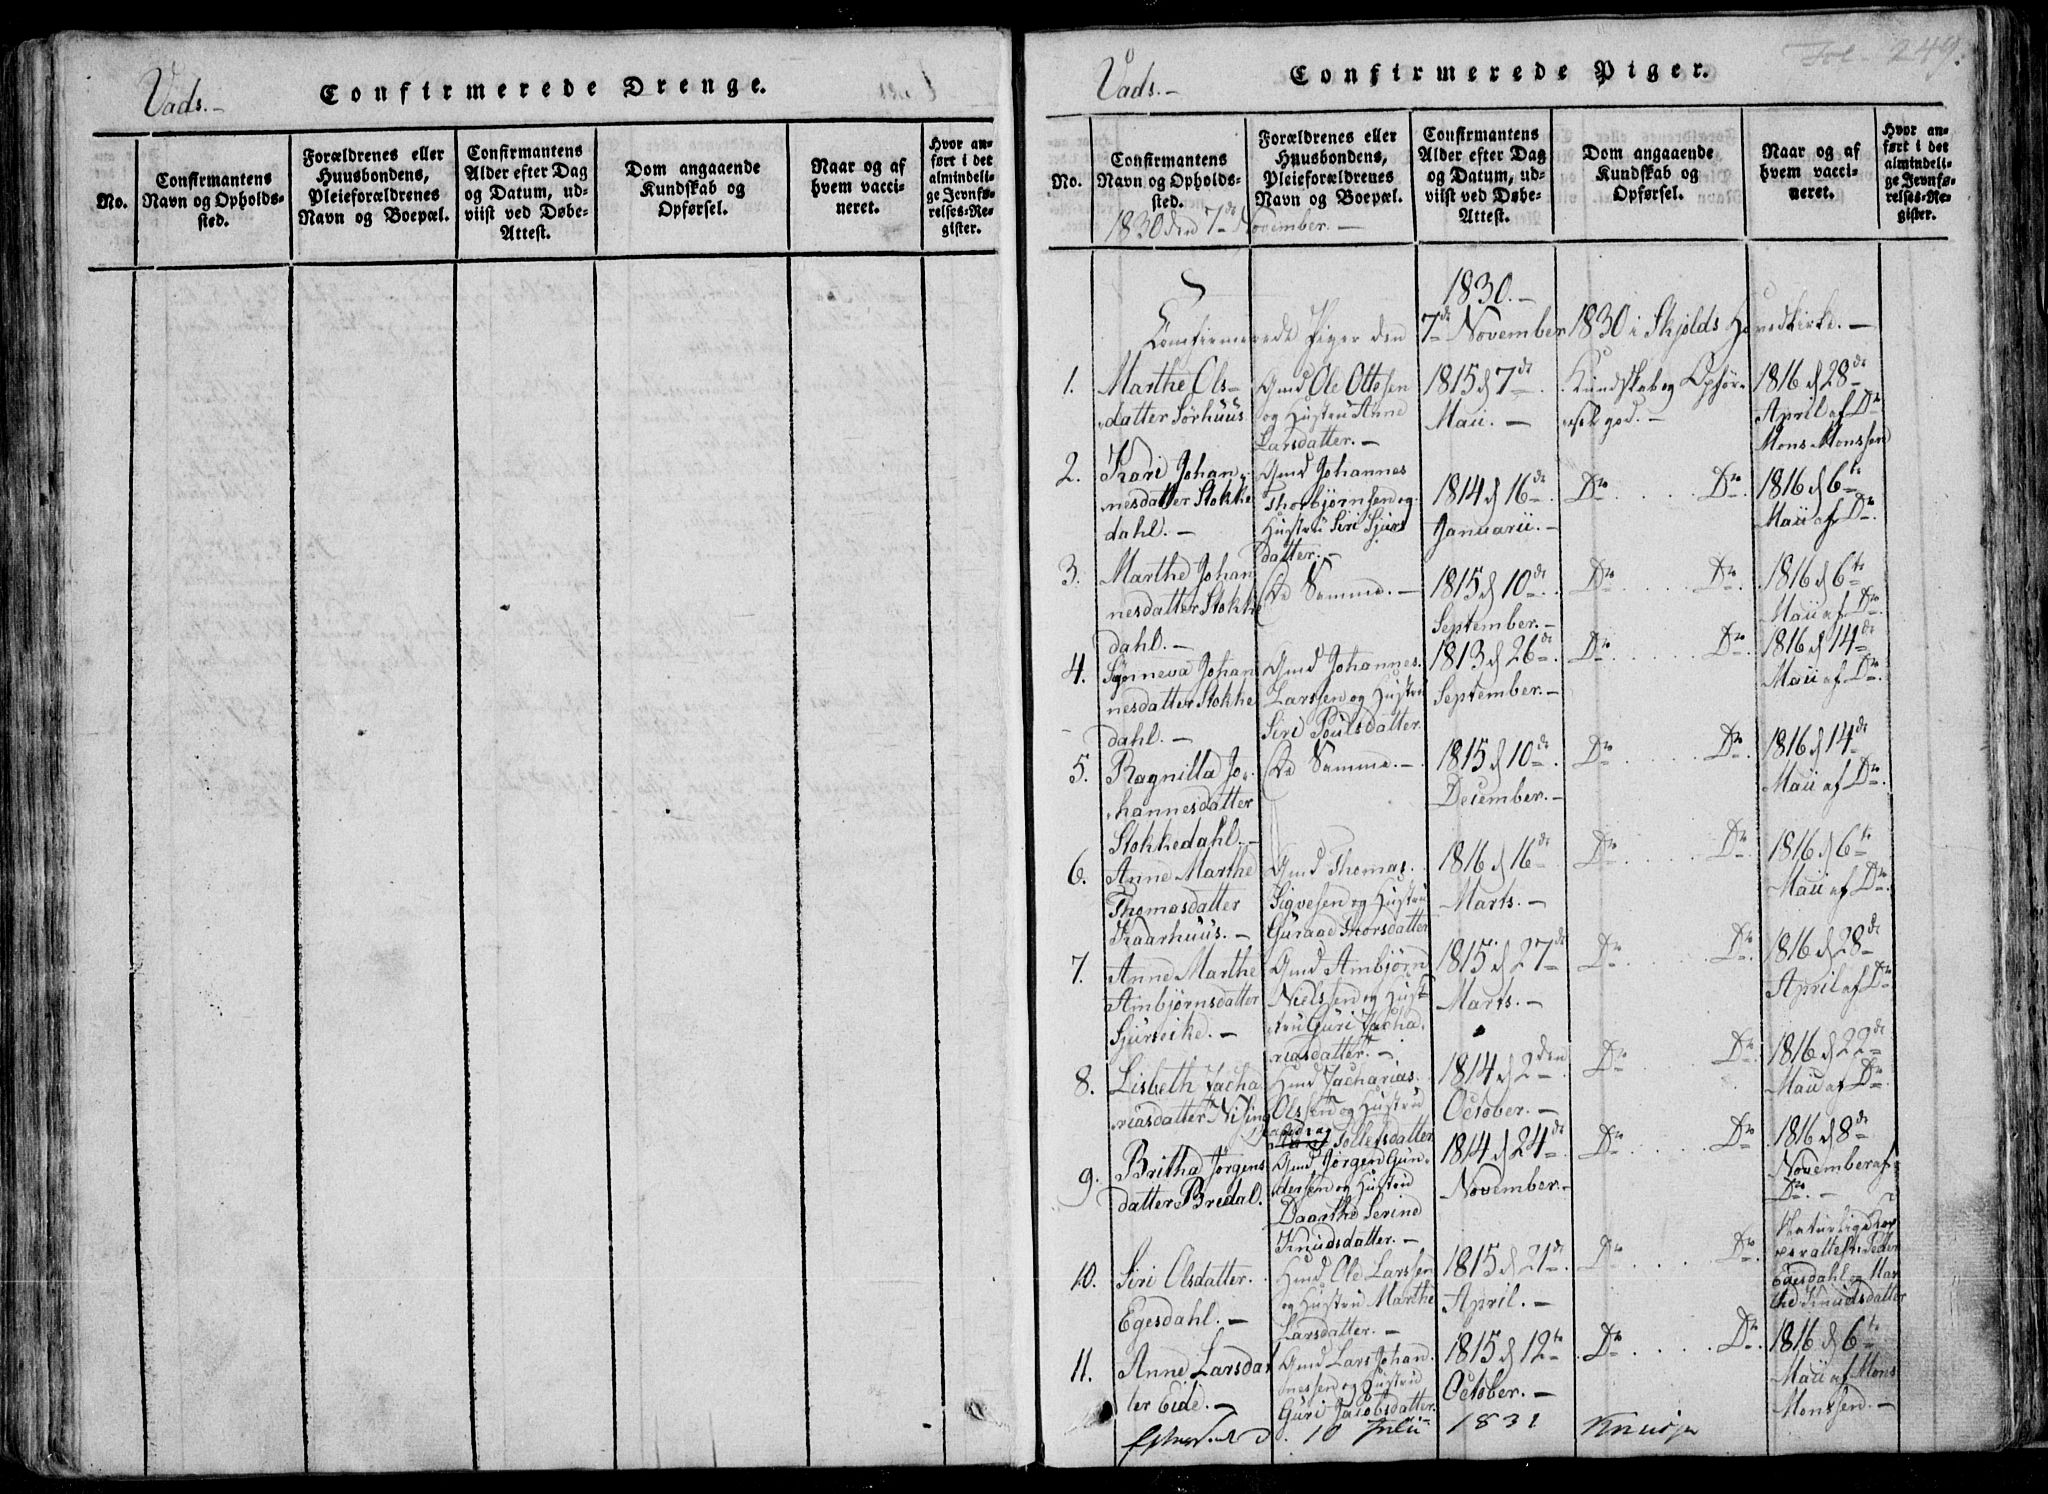 Vads.-
Confirmerede Drenge.
No.
Confirmantens
Navn og Opholds-
sted.
Forældrenes eller
Huusbondens,
Pleieforældrenes
Navn og Boepæl.
Confirmantens
Alder efter Dag
og Datum, ud-
viist ved Døbe-
Attest.
Dom angaaende
Kundskab og
Opførsel.
Naar og af
hvem vacci-
neret.
Hvor an-
ført i det
almindeli-
ge Jevnfø-
relses-Re-
gister.
Fol. 249.
Vads.-
Confirmerede Piger.
No.
Confirmantens
Navn og Opholds-
sted.
Forældrenes eller
Huusbondens,
Pleieforældrenes
Navn og Boepæl.
Confirmantens
Alder efter Dag
og Datum, ud-
viist ved Døbe-
Attest.
Dom angaaende
Kundskab og
Opførsel.
Naar og af
hvem vacci-
neret.
Hvor an-
ført i det
almindeli-
ge Jevnfø-
relses-Re-
gister.
1830 den 7de November.-
1830.-
Confirmerede Piger den 7de November 1830 i Skjolds Hovedkirke.-
1.
Marthe Ols-
datter Sørhuus
Gmd Ole Ottesen
og Hustru Anne
Larsdatter.-
1815 d 7de
Maii.-
Kundskab og Opfør-
sel god.-
1816 d 28de
April af Dr
Mons Monssen
2.
Kari Johan-
nesdatter Stokke
dahl.-
Gmd Johannes
Thorbjørnsen og
Hustru Siri Sjurs
datter.-
1814 d 16de
Januarii.-
Do Do
1816 d 6te
Maii af Do
3.
Marthe Johan
nesdatter Stokke
dahl.-
De Samme.-
1815 d 10de
September.-
Do Do
1816 d 6te
Maii af Do
4.
Synneva Johan
nesdatter Stokke
dahl.-
Gmd Johannes
Larssen og Hustru
Siri Poulsdatter
1813 d 26de
September.-
Do Do
1816 d 14de
Maii af Do
5.
Ragnilla Jo-
hannesdatter
Stokkedahl.-
De Samme.-
1815 d 10de
December.-
Do Do
1816 d 14de
Maii af Do
6.
Anne Marthe
Thomasdatter
Kaarhuus.-
Gmd Thomas
Sigvesen og Hustru
Guraae Thorsdatter
1816 d 16de
Marts.-
Do Do
1816 d 6te
Maii af Do
7.
Anne Marthe
Ambjørnsdatter
Sjurseike.-
Gmd Ambjørn
Nielssen og Hust
tru Guri Zacha
riasdatter.-
1815 d 27de
Marts.-
Do Do
1816 d 28de
April af Do
8.
Lisbeth Zacha
riasdatter
Hmd Zacharias
Olssen og Hustru
Tollefsdatter
1814 d 2den
October.-
Do Do
1816 d 22de
Maii af Do
9.
Britha Jørgens
datter Bredal.
Gmd Jørgen Gun-
dersen og Hustru
Daarthe Serine
Knudsdatter.-
1814 d 24de
November.-
Do Do
1816 d 8de
November af
Do.-
10.
Siri Olsdatter
Egesdahl.-
Hmd Ole Larssen
og Hustru Marthe
Larsdatter.-
1815 d 21de
April.-
Do Do
Naturlige Kop
per attest: Peder
Egesdahl og Mar
the Knudsdatter
11.
Anne Larsdat
ter Eide.-
Gmd Lars Johan
nessen og Hustru
Guri Jacobsdatter
1815 d 12te
October.-
Do Do
1816 d 6te
Maii af Mons
Monssen.-
10 Julii 1831